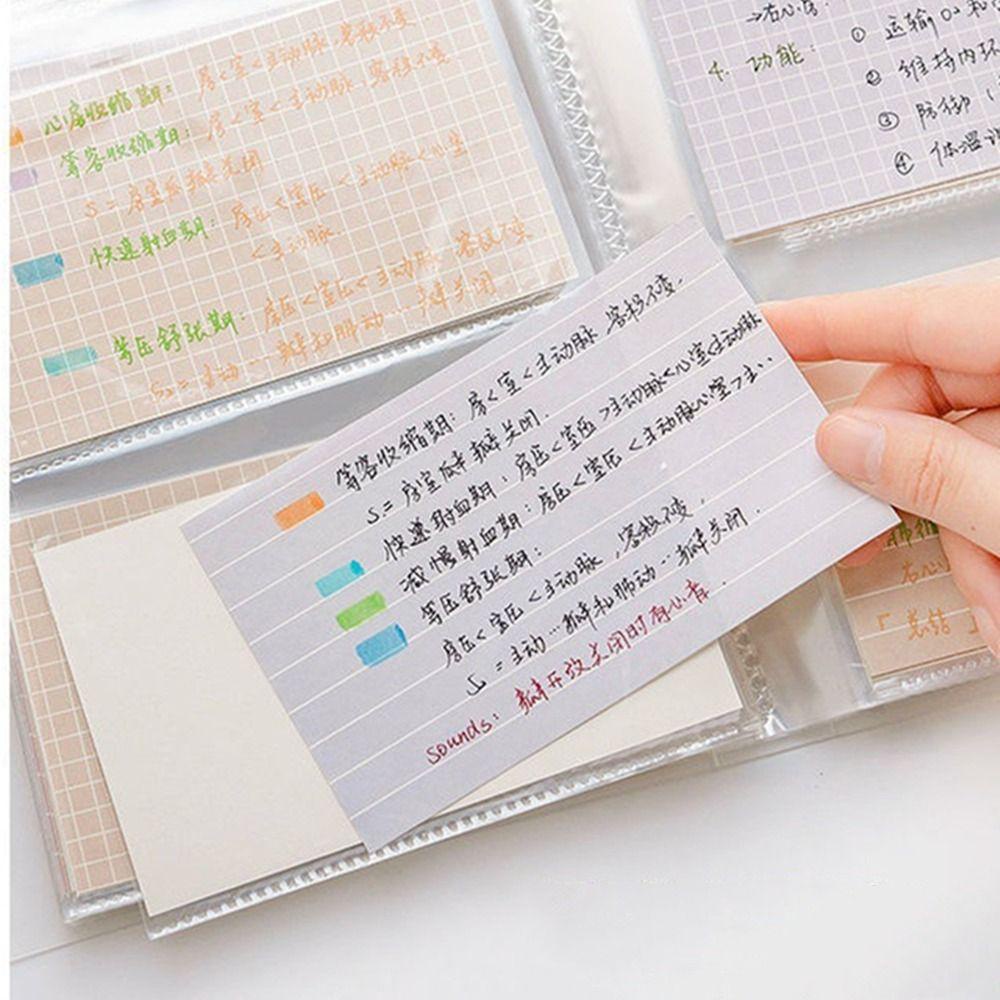 心房收缩期: 房<室<主动脉 容积不变
等容收缩期: 房<室<主动脉 容积不变
S= 房室瓣关闭
快速射血期: 房压<室压<主动脉<心室
<主动脉.
等压舒张期: 房压<室压<主动脉 容积不变
S₂= 主动…瓣和肺动…瓣关闭
→右心房.
4. 功能:
① 运输O₂和
② 维持内环
③ 防御
④ 体温
等容收缩期: 房<室<主动脉 容积不变.
S= 房室瓣关闭.
快速射血期: 房压<室压>主动脉<心室<主动脉
减慢射血期: 房压<室压<主动脉心室>主..
等压舒张期:
房压<室压<主动脉, 容积不变.
S = 主动…瓣和肺动…瓣关闭.
sounds: 瓣开放关闭时有心音.
右心
「总结」